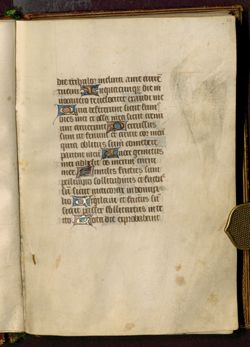 die tribulor inclina ad me aurem
tuam In quacumque die in
vocavero te velociter exaudi me
Quia defecerunt sicut fumus
dies mei et ossa mea sicut cremi
um aruerunt Percussus
sum ut fenum et aruit cor meum
quia oblitus sum comedere
panem meum A voce gemitus
mei adhesit os meum carni
mee Similis factus sum
pellicano solitudinis et factus
sum sicut nicticorax in domicilio
Vigilavi et factus sum
sicut passer solitarius in tec
to Tota die exprobrabant